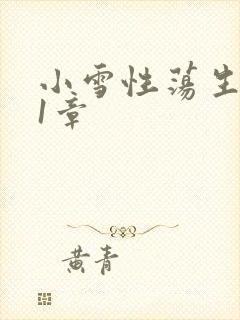 小雪性荡生
1章
黄青